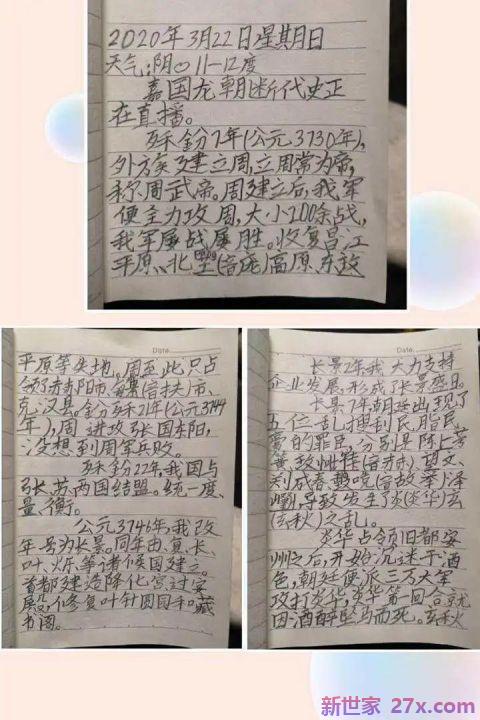 2020年3月22日星期日
天气:阴 11-12度
嘉国龙朝断代史正
在直播。
7年(公元3730年),
外方矣了建立周,立周常为帝,
称周武帝。周建立后,我军
便全力攻周,大小200余战,
我军屡战屡胜。收复昌江
平原、北(音庞)高原、东政
Date
平原等失地。周至此只占
领了赤阳市、(音扶)市、
克汉县。21年(公元3744
年),周进攻张国东阳,
没想到周军兵败。
22年,我国与
张、苏两国结盟。统一度、
量、衡。
公元3746年,我改
年号为长景。同年由、复、长、
叶、炘、等诸侯国建立。
首都建造降化宫过安
殿,修复叶针圆园和藏
书阁。
Date
长景2年我大力支持
企业发展,形成了长景盛日。
长景7年朝廷出现了
五位乱搜刮民脂民
膏的罪臣,分别是陈上考
黄、(音赤)、望文、
刹成春(音故拳)泽
,导致发生了炎(炎华)玄
(玄秋)之乱。
炎华占领旧都家
州之后,开始沉迷于酒
色,朝廷便派三万大军
攻打炎华,炎华第一回合就
因酒醉坠马而死。玄秋
新世家 27x.com